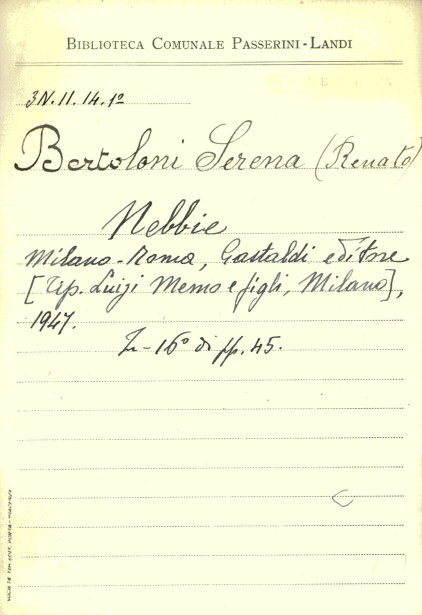 BIBLIOTECA COMUNALE PASSERINI-LANDI
3N.II.14.1º
Bertoloni Serena (Renato)
Nebbie
Milano-Roma, Gastaldi editore
[Tip. Luigi Memo e figli, Milano],
1947.
In-16º di pp. 45.